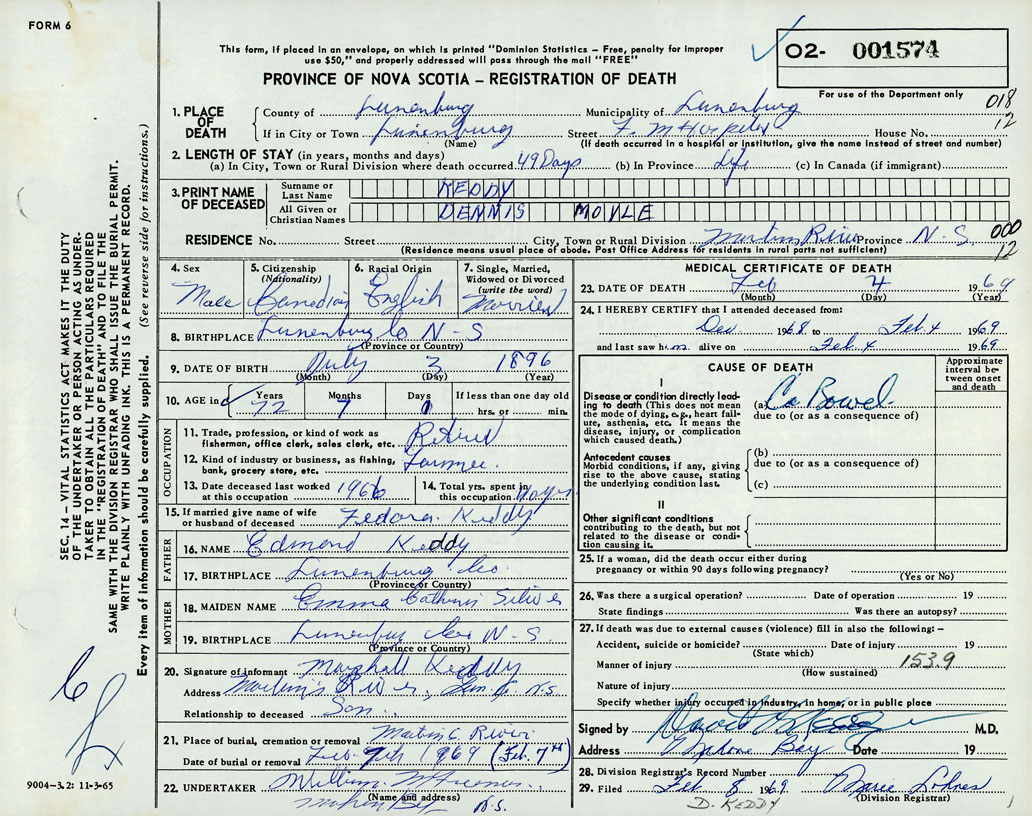 FORM 6
This form, if placed in an envelope, on which is printed "Dominion Statistics – Free, penalty for improper
use $50," and properly addressed will pass through the mail "FREE"
PROVINCE OF NOVA SCOTIA – REGISTRATION OF DEATH
O2- 001574
For use of the Department only
018
12
1. PLACE OF DEATH
County of Lunenburg Municipality of Lunenburg
If in City or Town Lunenburg Street F. M Hospital House No.
(Name) (If death occurred in a hospital or institution, give the name instead of street and number)
2. LENGTH OF STAY (in years, months and days)
(a) In City, Town or Rural Division where death occurred 49 Days (b) In Province Life (c) In Canada (if immigrant)
3. PRINT NAME OF DECEASED
Surname or Last Name KEDDY
All Given or Christian Names DENNIS MOYLE
RESIDENCE No. Street City, Town or Rural Division Martins River Province N.S.
(Residence means usual place of abode. Post Office Address for residents in rural parts not sufficient)
000
12
4. Sex Male
5. Citizenship (Nationality) Canadian
6. Racial Origin English
7. Single, Married, Widowed or Divorced (write the word) Married
8. BIRTHPLACE Lunenburg Co N-S
(Province or Country)
9. DATE OF BIRTH July 3 1896
(Month) (Day) (Year)
10. AGE in Years 72 Months 7 Days 1 If less than one day old hrs. or min.
OCCUPATION
11. Trade, profession, or kind of work as fisherman, office clerk, sales clerk, etc. Retired
12. Kind of industry or business, as fishing, bank, grocery store, etc. Farmer.
13. Date deceased last worked at this occupation 1966
14. Total yrs. spent in this occupation
15. If married give name of wife or husband of deceased Fedora Keddy
FATHER
16. NAME Edmond Keddy
17. BIRTHPLACE Lunenburg Co.
(Province or Country)
MOTHER
18. MAIDEN NAME Emma
19. BIRTHPLACE Lunenburg Co N-S.
(Province or Country)
20. Signature of informant Marshall Keddy
Address Martin's River, Lun. Co. N.S.
Relationship to deceased Son.
21. Place of burial, cremation or removal Martin's River
Date of burial or removal Feb 7th 1969 (Feb. 7th)
22. UNDERTAKER William
(Name and address)
Mahone Bay N.S.
MEDICAL CERTIFICATE OF DEATH
23. DATE OF DEATH Feb 4 1969
(Month) (Day) (Year)
24. I HEREBY CERTIFY that I attended deceased from:
Dec 1968 to Feb. 4 1969
and last saw him alive on Feb. 4 1969
CAUSE OF DEATH
Approximate interval between onset and death
I
Disease or condition directly leading to death (This does not mean the mode of dying, e.g., heart failure, asthenia, etc. It means the disease, injury, or complication which caused death.)
(a) Ca Bowel
due to (or as a consequence of)
Antecedent causes
Morbid conditions, if any, giving rise to the above cause, stating the underlying condition last.
(b)
due to (or as a consequence of)
(c)
II
Other significant conditions
contributing to the death, but not related to the disease or condition causing it.
25. If a woman, did the death occur either during
pregnancy or within 90 days following pregnancy?
(Yes or No)
26. Was there a surgical operation? Date of operation 19
State findings Was there an autopsy?
27. If death was due to external causes (violence) fill in also the following: –
Accident, suicide or homicide? Date of injury 19
(State which)
Manner of injury 153.9
(How sustained)
Nature of injury
Specify whether injury occurred in industry, in home, or in public place
Signed by M.D.
Address Mahone Bay Date 19
28. Division Registrar's Record Number
29. Filed Feb 8 1969 Marie Lohnes
(Division Registrar)
D. KEDDY
SEC. 14 – VITAL STATISTICS ACT MAKES IT THE DUTY
OF THE UNDERTAKER OR PERSON ACTING AS UNDER-
TAKER TO OBTAIN ALL THE PARTICULARS REQUIRED
IN THE "REGISTRATION OF DEATH" AND TO FILE THE
SAME WITH THE DIVISION REGISTRAR WHO SHALL ISSUE THE BURIAL PERMIT.
WRITE PLAINLY WITH UNFADING INK. THIS IS A PERMANENT RECORD.
Every item of information should be carefully supplied. (See reverse side for instructions.)
9004-3.2: 11-3-65